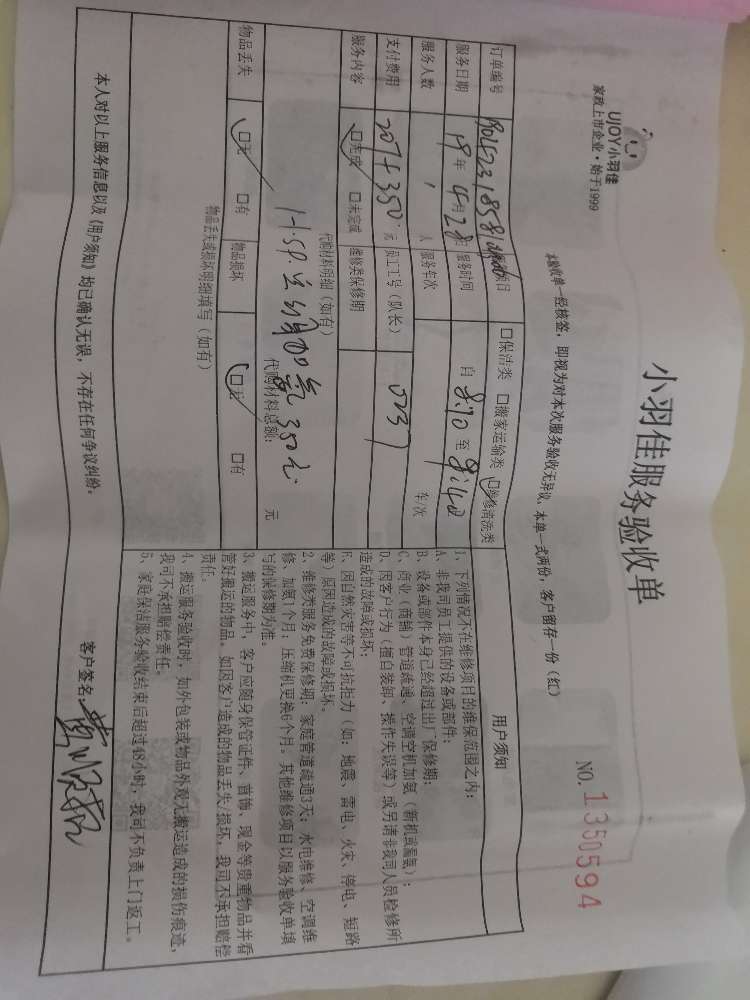 UJOY小羽佳
家政上市企业·始于1999
小羽佳服务验收单
NO. 1350594
本验收单一经核签，即视为对本次服务验收无异议，本单一式两份，客户留存一份（红）
订单编号
项目 □保洁类 □搬家运输类 □维修清洗类
服务日期 19年4月28日 服务时间 自 8:10 至 8:40
服务人数 1 人 服务车次 车次
支付费用 20+350 元 员工工号（队长） 0237
服务内容 □完成 □未完成 维修类保修期
代购材料明细（如有）
加氟 350元
代购材料总额： 元
物品丢失 □无 □有 物品损坏 □无 □有
物品丢失或损坏明细填写（如有）
用户须知
1、下列情况不在维修项目的维保范围之内：
A、非我司员工提供的设备或部件；
B、设备或部件本身已经超过出厂保修期；
C、商业（商铺）管道疏通、空调空机加氨（新机或漏氨）；
D、因客户行为（擅自装卸、操作失误等）或另请非我司人员检修所
造成的故障或损坏；
E、因自然灾害等不可抗拒力（如：地震、雷电、火灾、停电、短路
等）原因造成的故障或损坏。
2、维修类服务免费保修期：家庭管道疏通3天；水电维修、空调维
修、加氨1个月；压缩机更换6个月。其他维修项目以服务验收单填
写的保修期为准。
3、搬运服务中，客户应随身保管证件、首饰、现金等贵重物品并看
管好搬运的物品。如因客户造成的物品丢失/损坏，我司不承担赔偿
责任。
4、搬运服务验收时，如外包装或物品外观无搬运造成的损伤痕迹，
我司不承担赔偿责任。
5、家庭保洁服务验收结束后超过48小时，我司不负责上门返工。
本人对以上服务信息以及《用户须知》均已确认无误，不存在任何争议纠纷。
客户签名